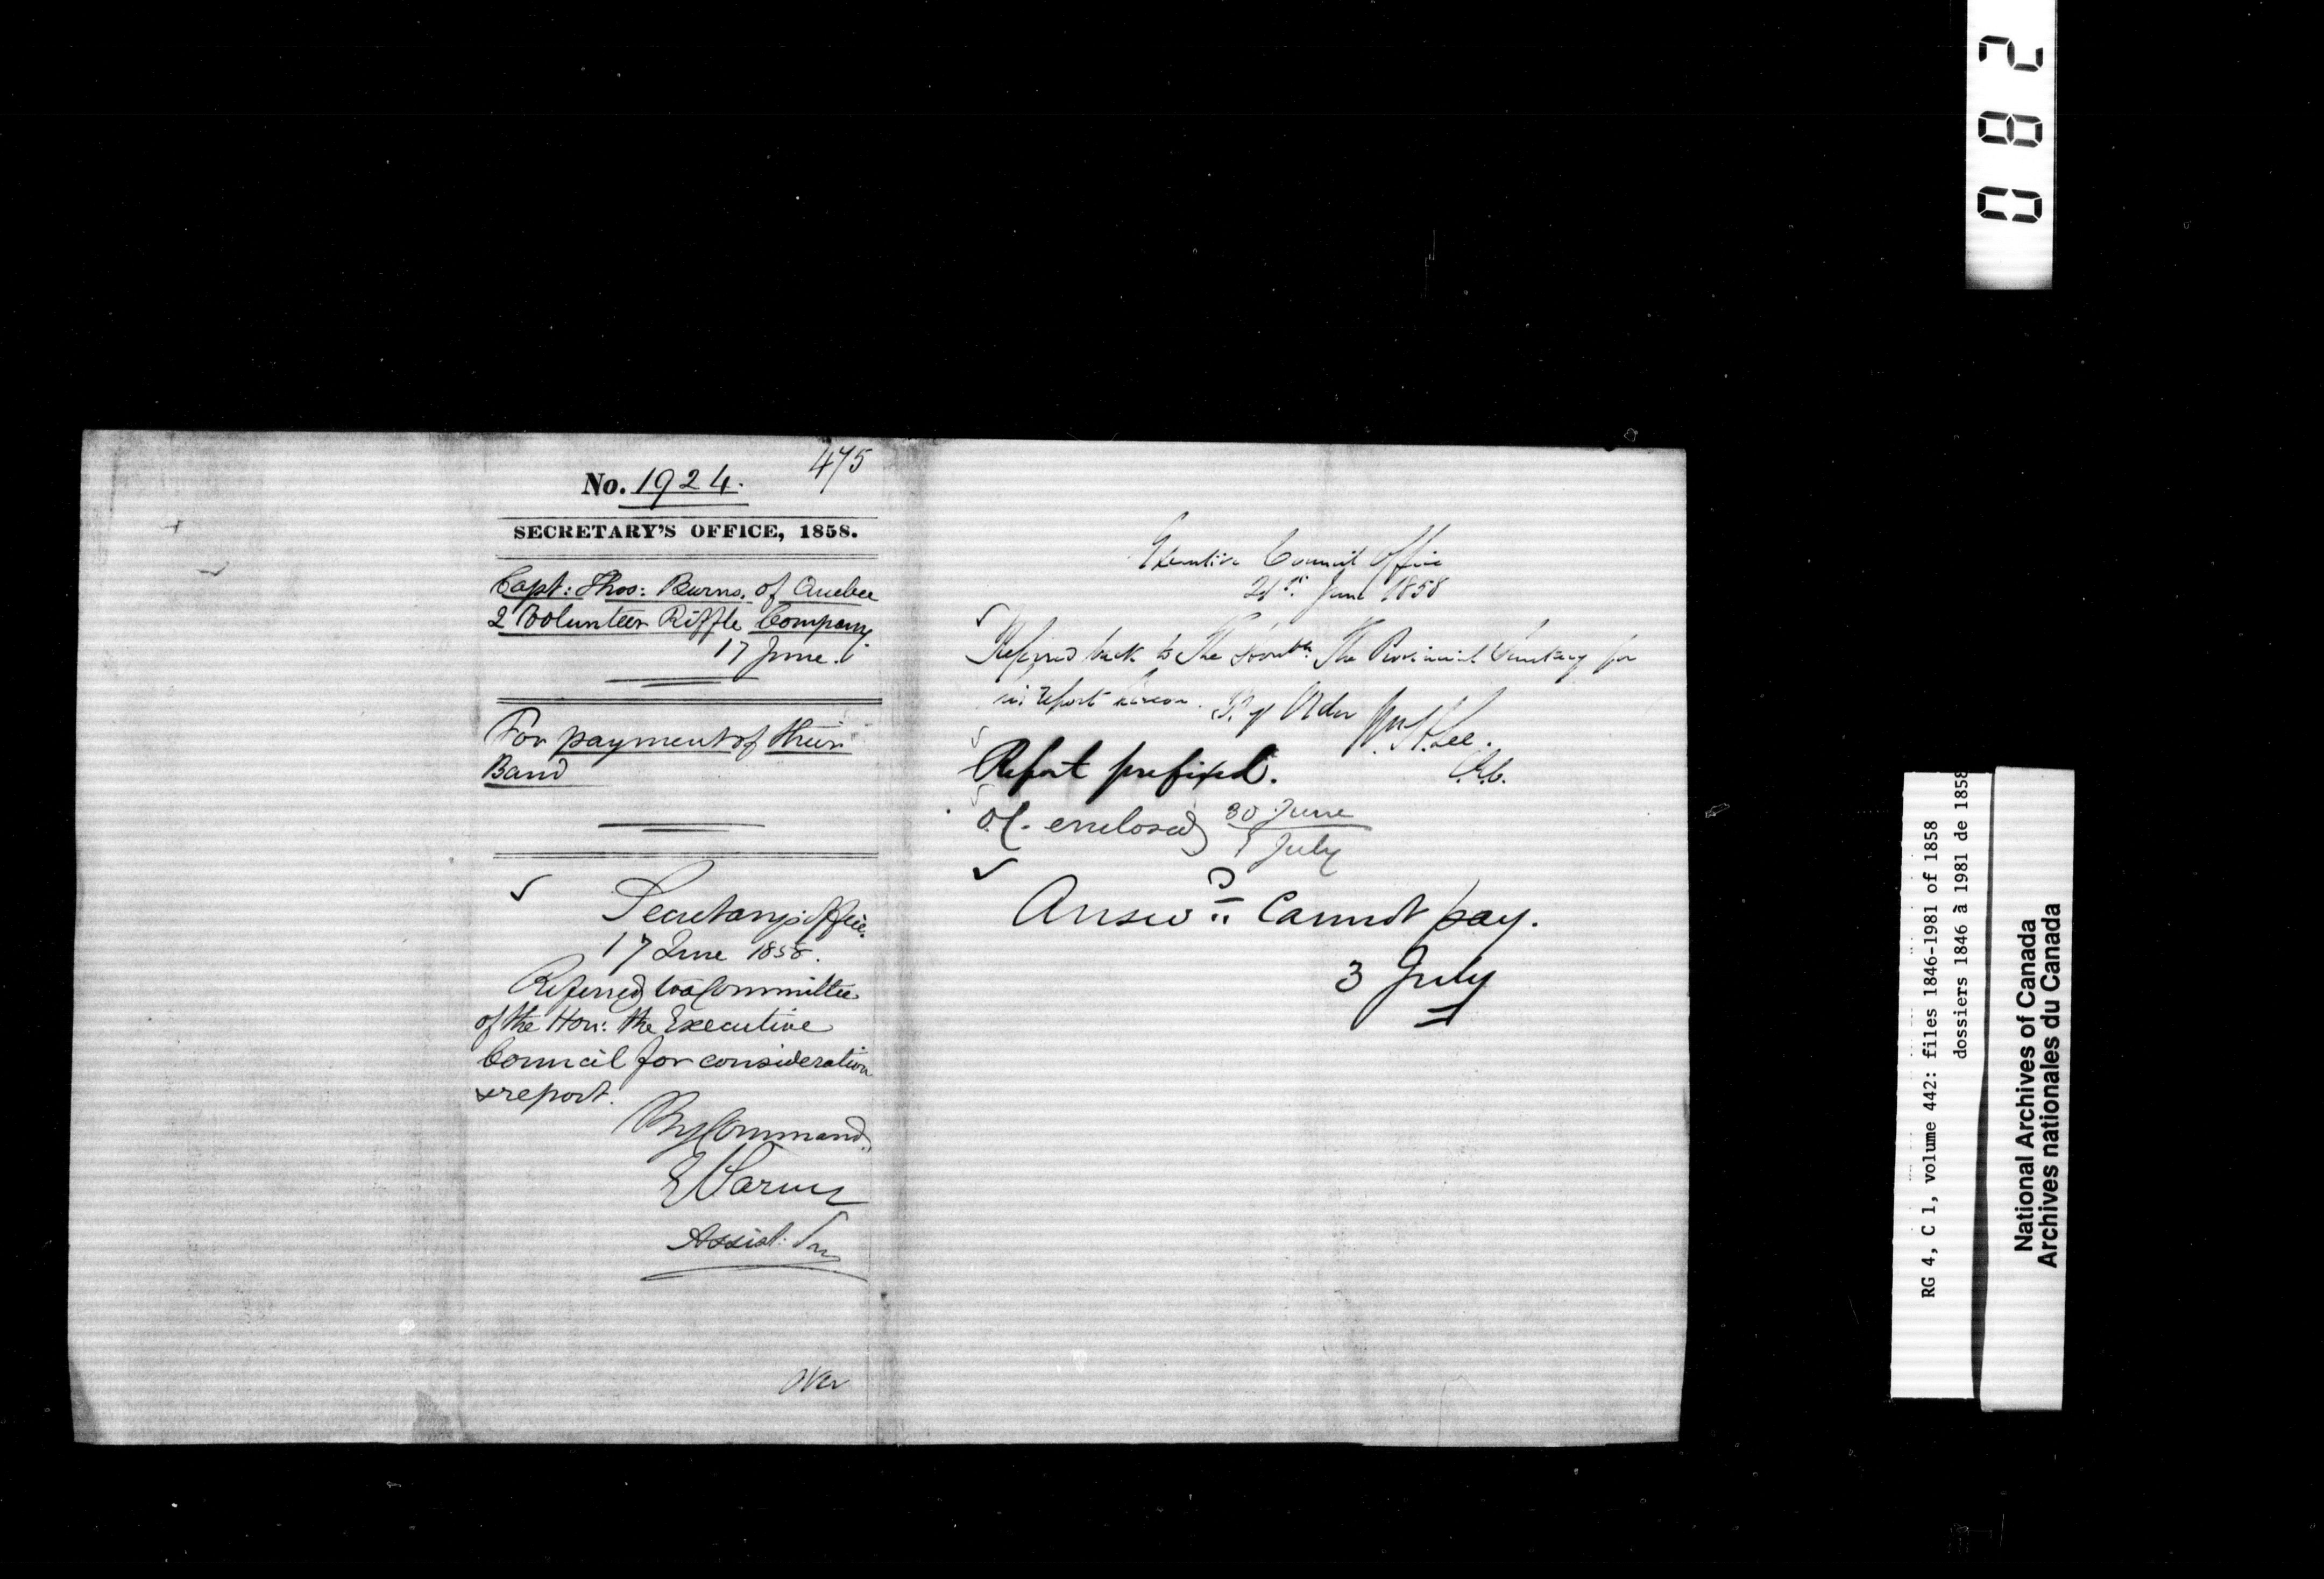 475
No. 1924.
SECRETARY'S OFFICE, 1858.
Capt: Thos: Burns. of Quebec
2 Volunteer Riffle Company
17 June.
For payment of their
Band
Secretary's Office.
17 June 1858.
Referred to a Committee
of the Hon: the Executive
Council for consideration
& report.
By Command,
Assist: Sec
over
Executive Council Office
21st June 1858
Referred back to The Honble The Provincial Secretary for
his report hereon. By Order Wm H. Lee.
Report prefixed.
O.C. enclosed 30 June
1 July
Answd Cannot pay.
3 July
082
RG 4, C 1, volume 442: files 1846-1981 of 1858
dossiers 1846 à 1981 de 1858
National Archives of Canada
Archives nationales du Canada